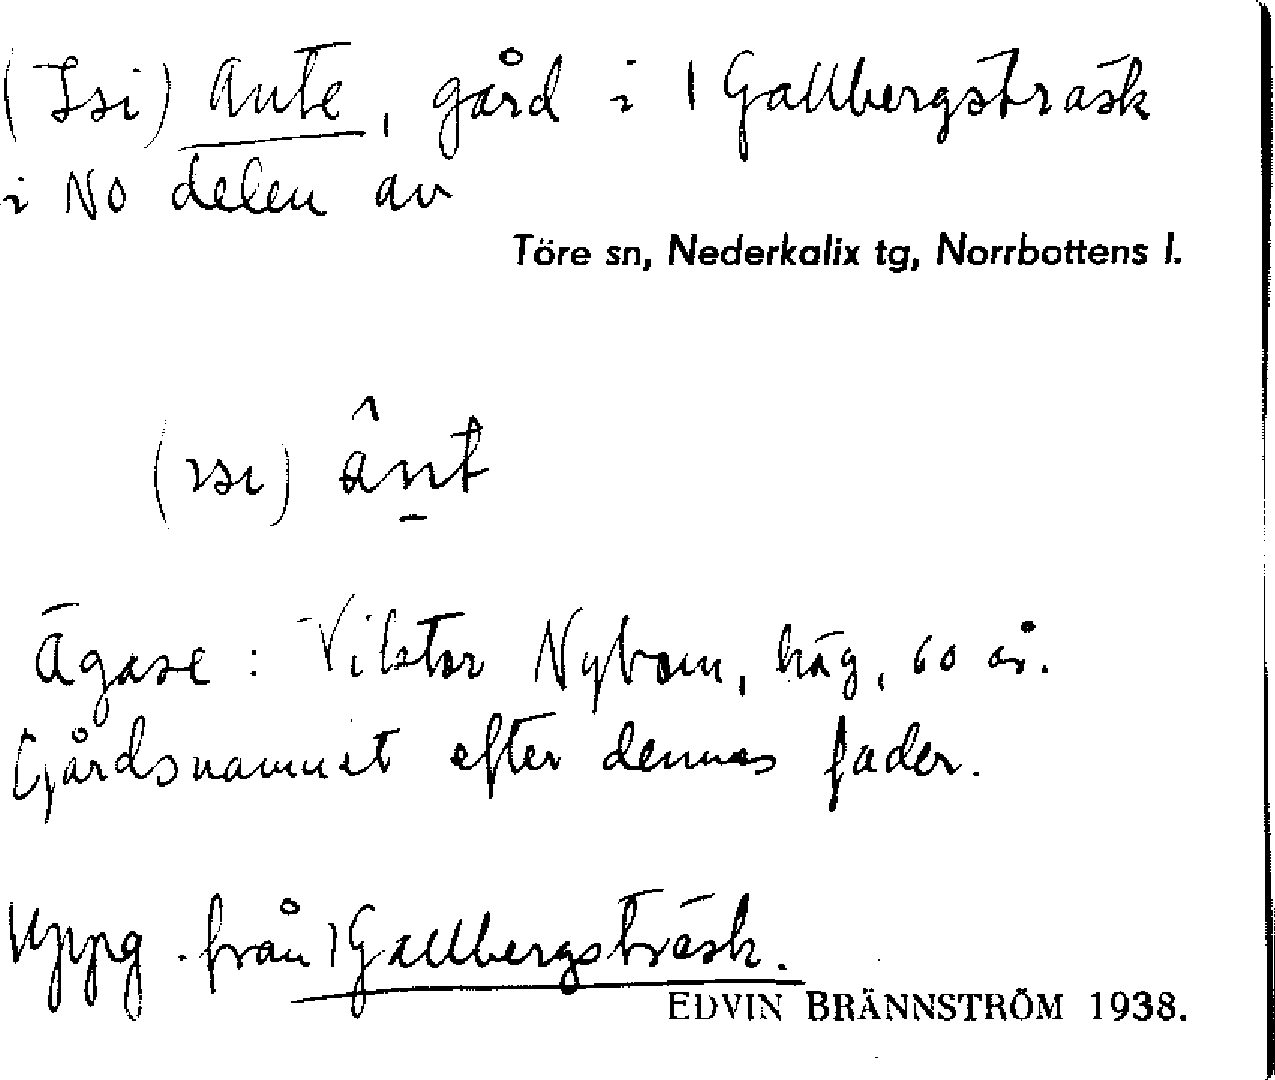 (Isi) Ante, gård i 1 Gallbergsträsk
i NO delen av
Töre sn, Nederkalix tg, Norrbottens l.
(ısı) ânt
Ägare: Viktor Nybom, häg, 60 år.
Gårdsnamnet efter dennes fader.
Uppg. från 1 Gallbergsträsk.
EDVIN BRÄNNSTRÖM 1938.